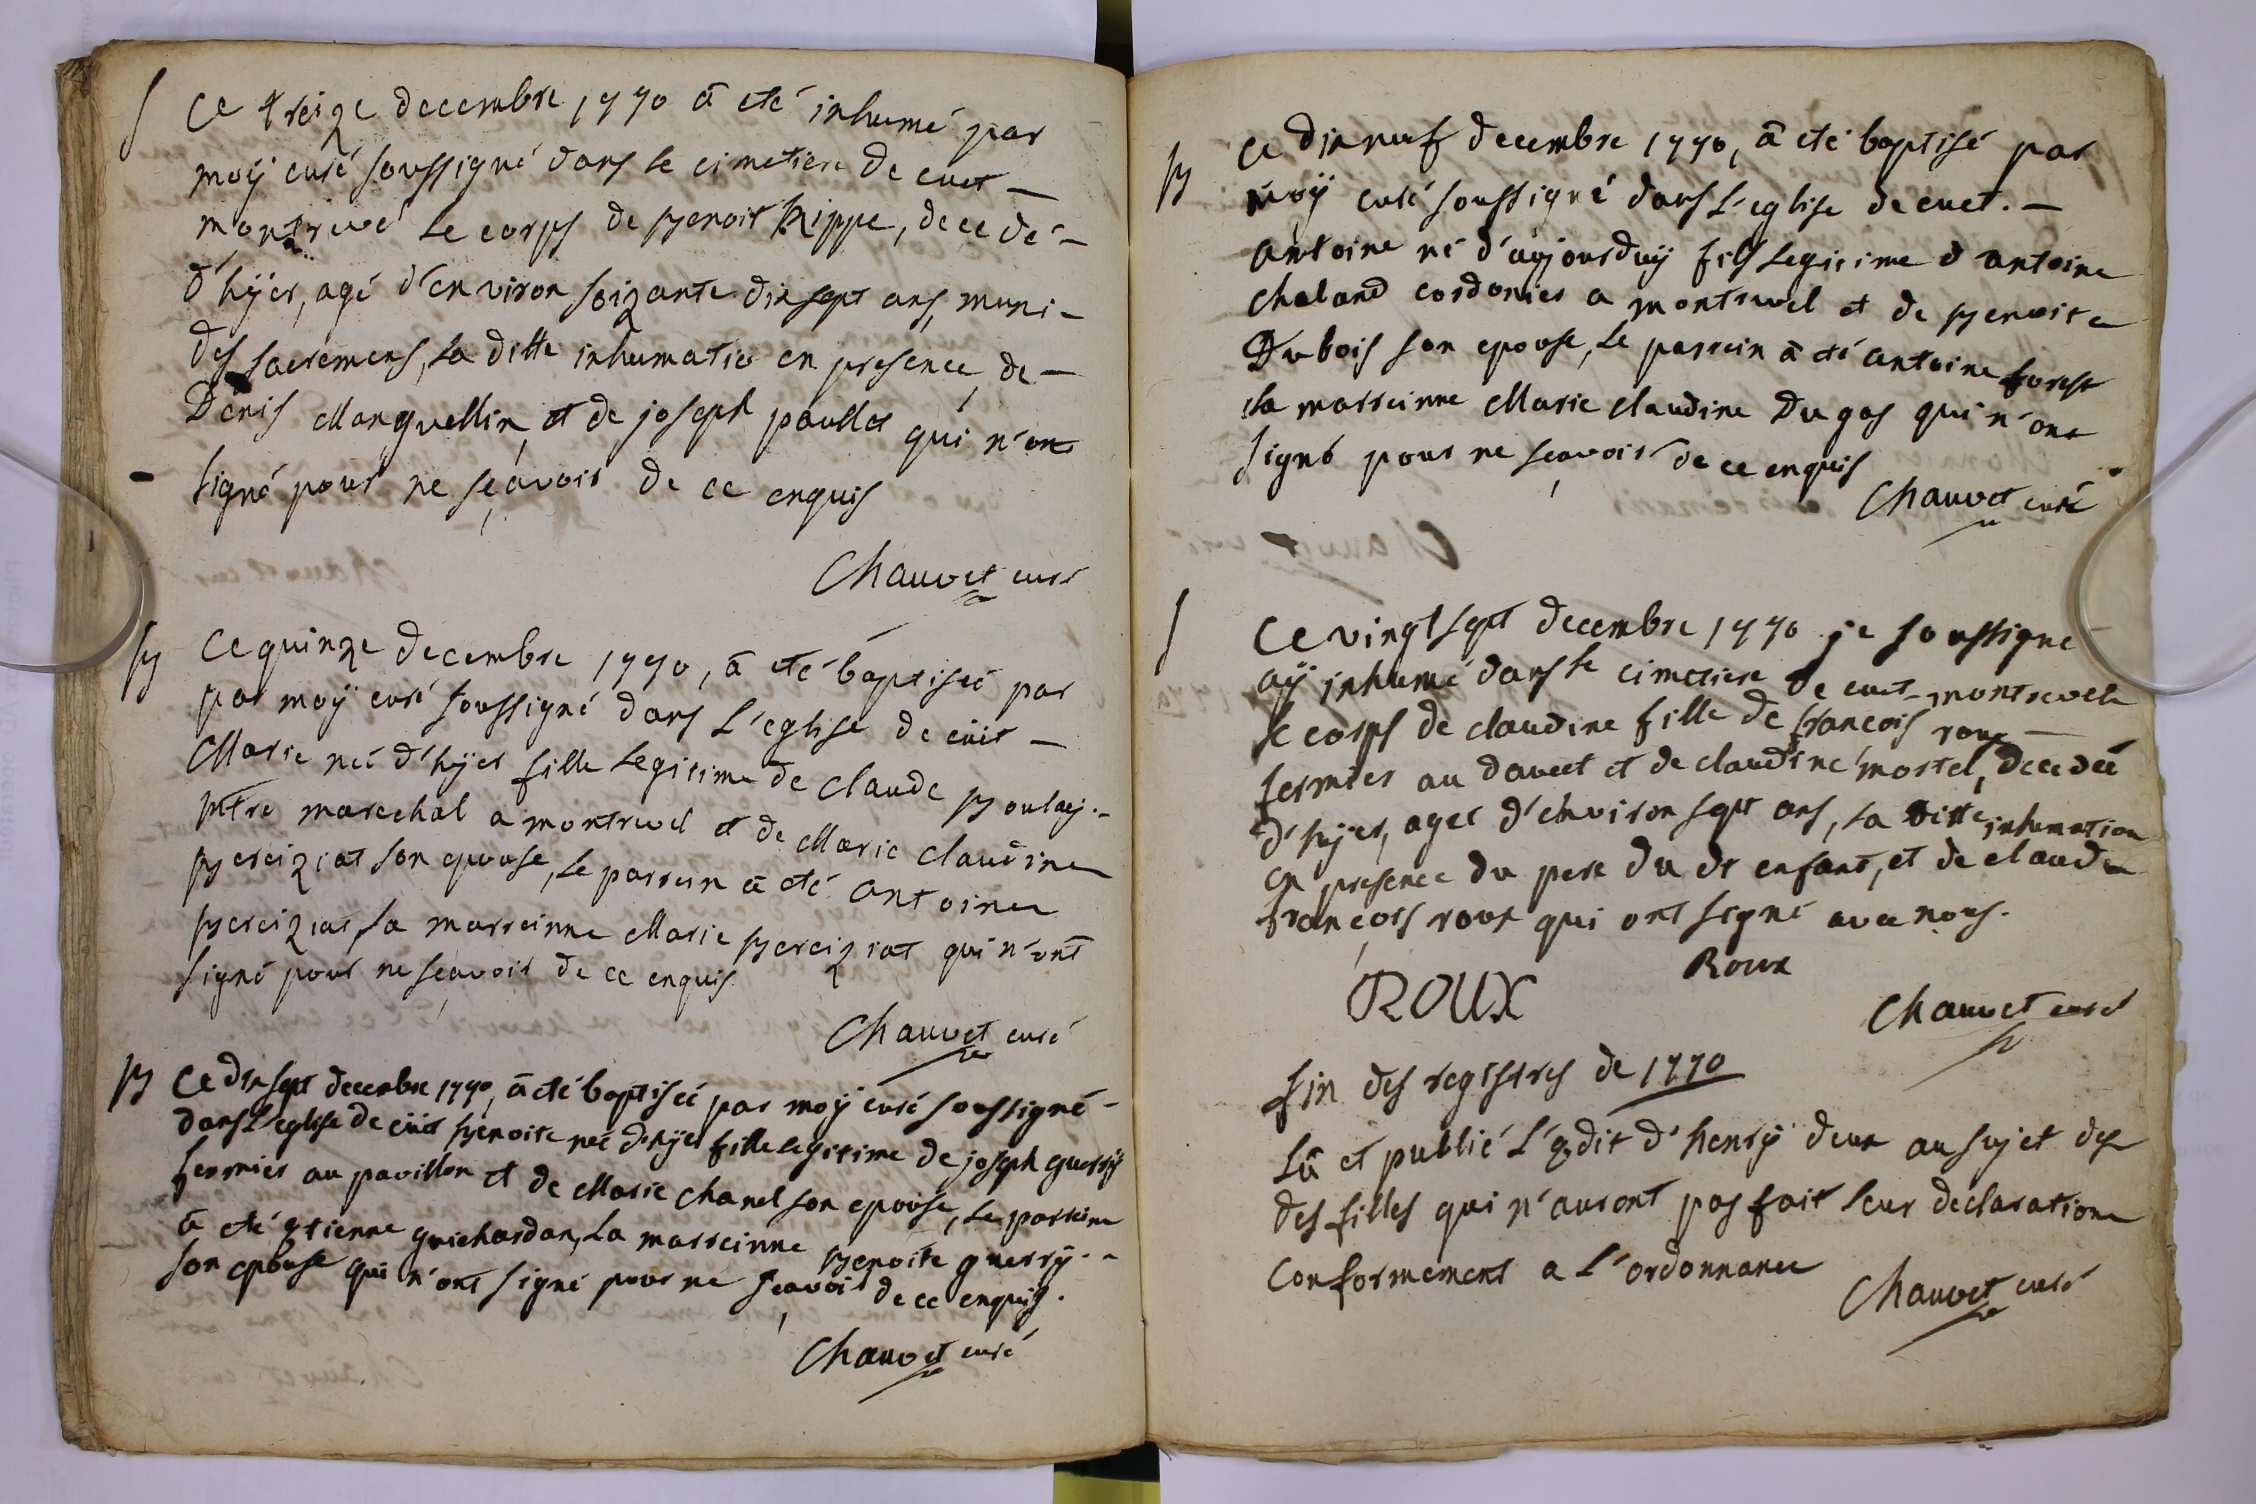 S
Ce treize decembre 1770 a eté inhumé par
moÿ curé soussigné dans le cimetiere de cuet
montrevel le corps de Benoit Rippe, decedé
d'hÿer, agé d'environ soizante dixsept ans, muni
des sacremens, La ditte inhumatio en presence, de
Denis Manguellin, et de joseph paullet qui n'ont
signé pour ne sçavoir de ce enquis
Chauvet curé
B
Ce quinze decembre 1770, a eté baptiseé par
par moÿ curé soussigné dans L'eglise de cüet
Marie neé d'hÿer fille Legitime de claude
mtre marechal a montrevel et de Marie claudine
Bereiziat son epouse, Le parrein a eté antoine
Bereiziat, La marreinne Marie Bereiziat qui n'ont
signé pour ne sçavoir de ce enquis.
Chauvet curé
B
Ce dixsept decembre 1770, a eté baptiseé par moÿ curé soussigné
dans L'eglise de cüet Benoite neé d'hÿer fille Legitime de joseph guerrÿ
fermier au pavillon et de Marie chanel son epouse, Le parreine
a eté etienne guichardan, La marreinne Benoite guerrÿ
son epouse qui n'ont signé pour ne sçavoir de ce enquis.
Chauvet curé
B
Ce dixneuf decembre 1770, a eté baptisé par
moÿ curé soussigné dans L'eglise de cuet.
antoine né d'aujourduÿ fils Legitime d'antoine
chaland cordonier a montrevel et de Benoite
Dubois son epouse, Le parrein a eté antoine forest
La marreinne Marie claudine Dugas qui n'ont
signé pour ne sçavoir de ce enquis
Chauvet curé
S
Ce vingt sept decembre 1770 je soussigne
aÿ inhumé dans le cimetiere de cuet montrevel
le corps de claudine fille de francois roux
fermier au davet et de claudine mortel, decedeé
d'hÿer, ageé d'environ sept ans, La ditte inhumation
en presence du pere du dt enfant, et de claude
françois roux qui ont signé avec nous.
Roux
ROUX
Chauvet curé
fin des registres de 1770
Lû et publié L'edit d'henrÿ deux au sujet des
des filles qui n'auront pas fait leur declaration
Conformement a L'ordonnance
Chauvet curé